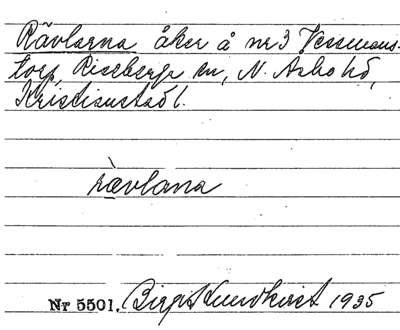 Rävlarna åker å nr 3 Vessmans-
torp, Riseberga sn, N. Åsbo hd,
Kristianstad l.
rävlana
Nr 5501. Birgit Lundkvist 1935